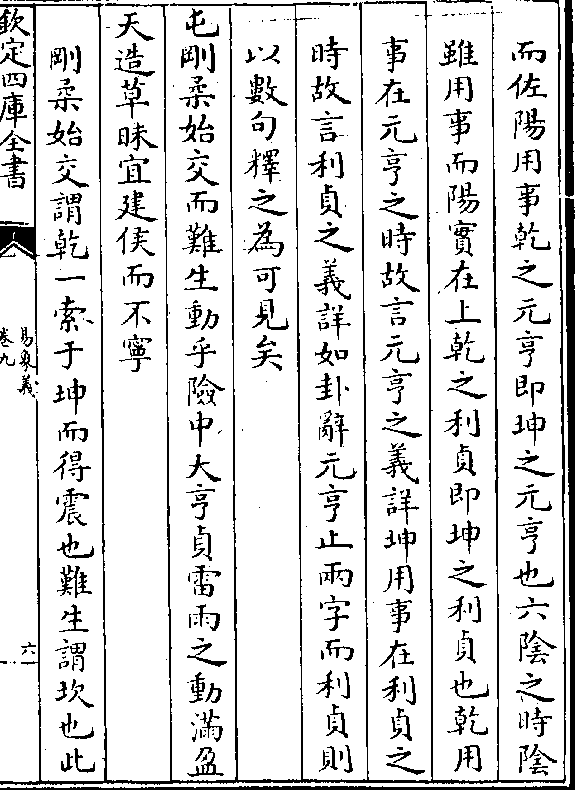 而佐陽用事乾之元亨即坤之元亨也六陰之時陰
雖用事而陽實在上乾之利貞即坤之利貞也乾用
事在元亨之時故言元亨之義詳坤用事在利貞之
時故言利貞之義詳如卦辭元亨止兩字而利貞則
以數句釋之為可見矣
屯剛柔始交而難生動乎險中大亨貞雷雨之動滿盈
天造草昧宜建侯而不寧
剛柔始交謂乾一索于坤而得震也難生謂坎也此
欽定四庫全書
易象義
卷九
六